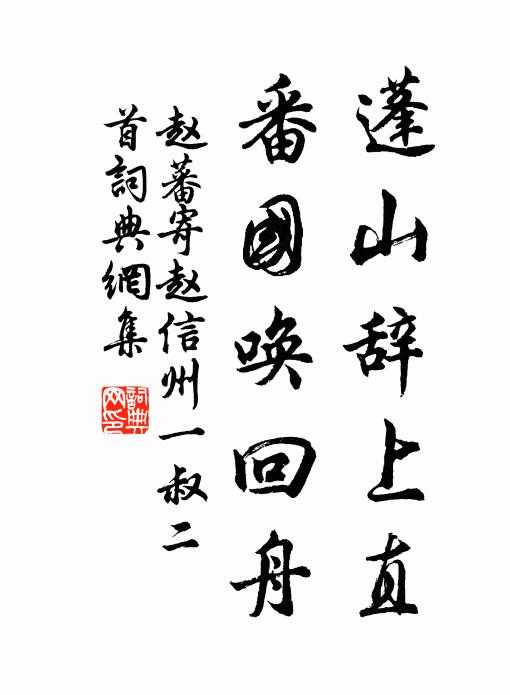 蓬山辞上直
番國唤回舟
赵蕃寄赵信州一叔二
首詞典網集
詞典网印